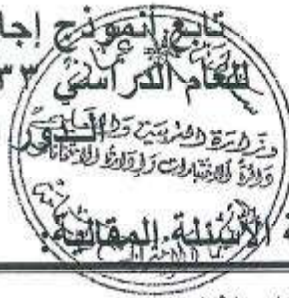 تابع أنموذج إجا
للعام الدراسي ٣٣
الدور
وزارة التربية وال
دائرة الاختبارات وإدارة الامتحانات
ة الأسئلة المقالية: